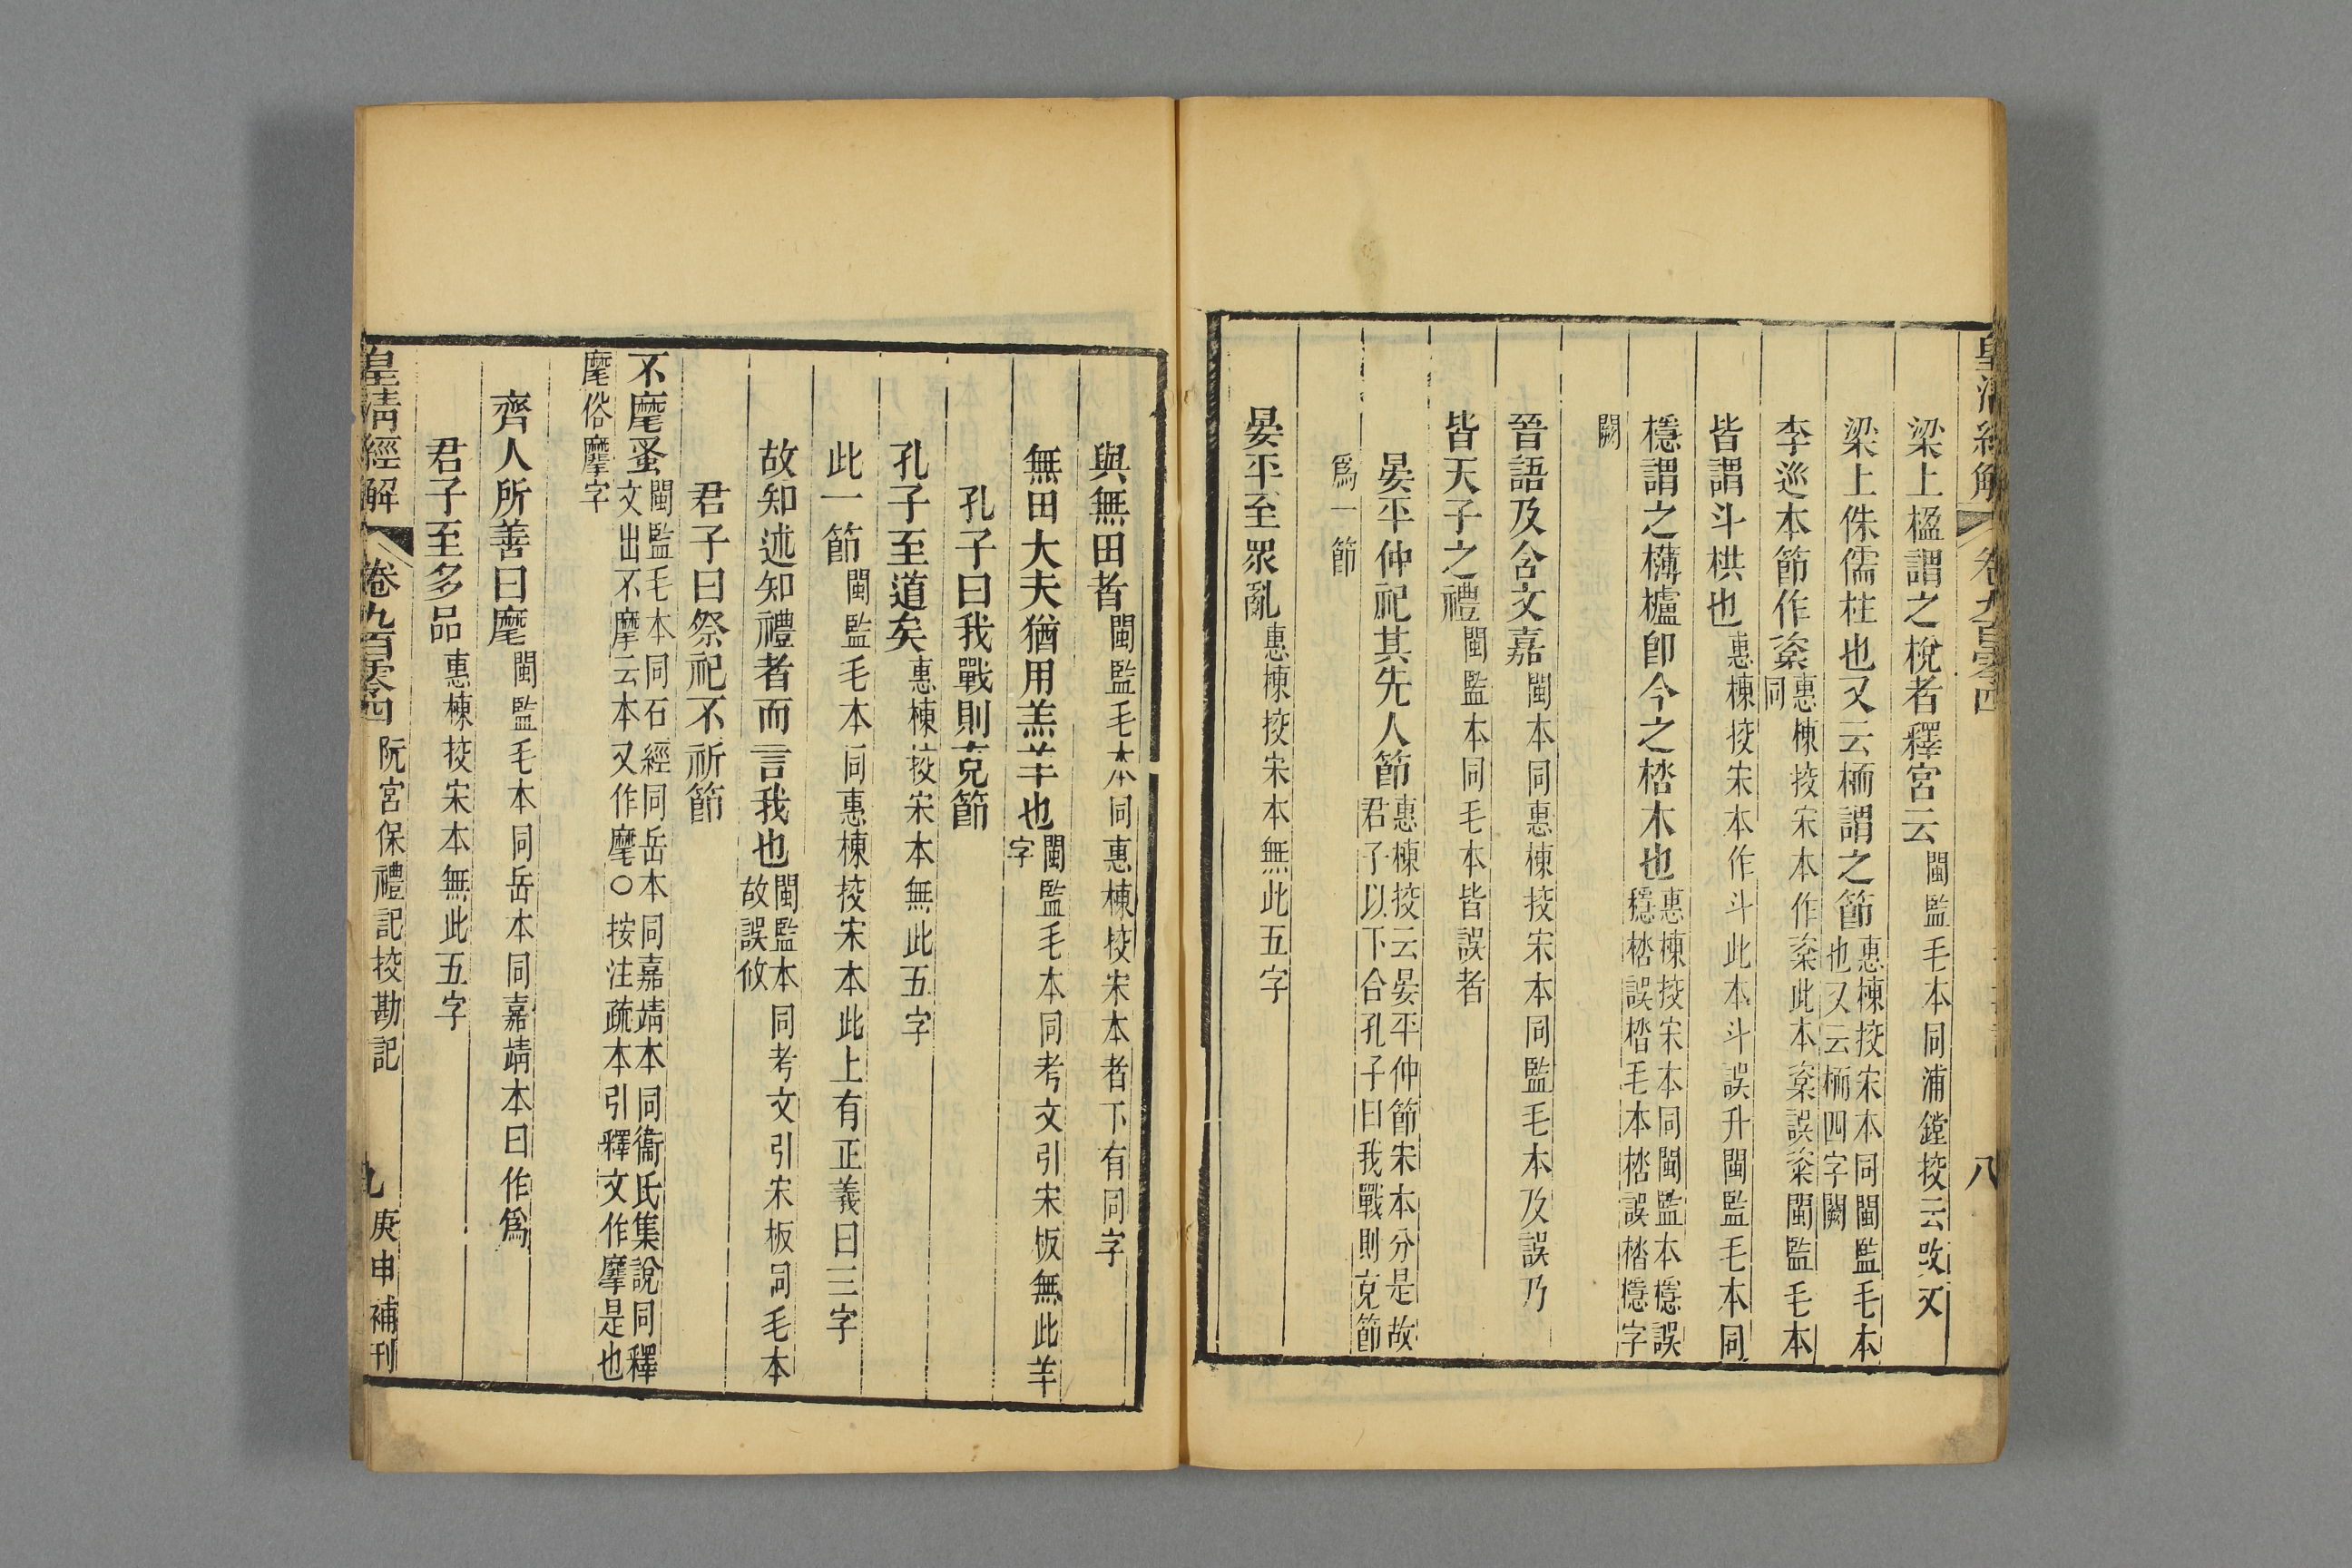 皇清經解 卷九百零四 八
梁上楹謂之梲者釋宮云閩監毛本同浦鏜挍云改又
梁上侏儒柱也又云栭謂之節惠棟挍宋本同閩監毛本也又云栭四字闕
李巡本節作楶惠棟挍宋本作楶此本楶誤楶閩監毛本同
皆謂斗栱也惠棟挍宋本作斗此本斗誤升閩監毛本同
檼謂之欂櫨卽今之㭼木也惠棟挍宋本同閩監本檼誤穩㭼誤楷毛本㭼誤楷檼字
闕
晉語及含文嘉閩本同惠棟挍宋本同監毛本及誤乃
皆天子之禮閩監本同毛本皆誤者
晏平仲祀其先人節惠棟挍云晏平仲節宋本分是故君子以下合孔子曰我戰則克節
爲一節
晏平至眾亂惠棟挍宋本無此五字
與無田者閩監毛本同惠棟挍宋本者下有同字
無田大夫猶用羔羊也閩監毛本同考文引宋板無此羊字
孔子曰我戰則克節
孔子至道矣惠棟挍宋本無此五字
此一節閩監毛本同惠棟挍宋本此上有正義曰三字
故知述知禮者而言我也閩監本同考文引宋板同毛本故誤攸
君子曰祭祀不祈節
不麾蚤閩監毛本同石經同岳本同嘉靖本同衞氏集說同釋文出不摩云本又作麾○按注疏本引釋文作摩是也
麾俗摩字
齊人所善曰麾閩監毛本同岳本同嘉靖本曰作爲
君子至多品惠棟挍宋本無此五字
皇清經解 卷九百零四 阮宮保禮記挍勘記 九 庚申補刊